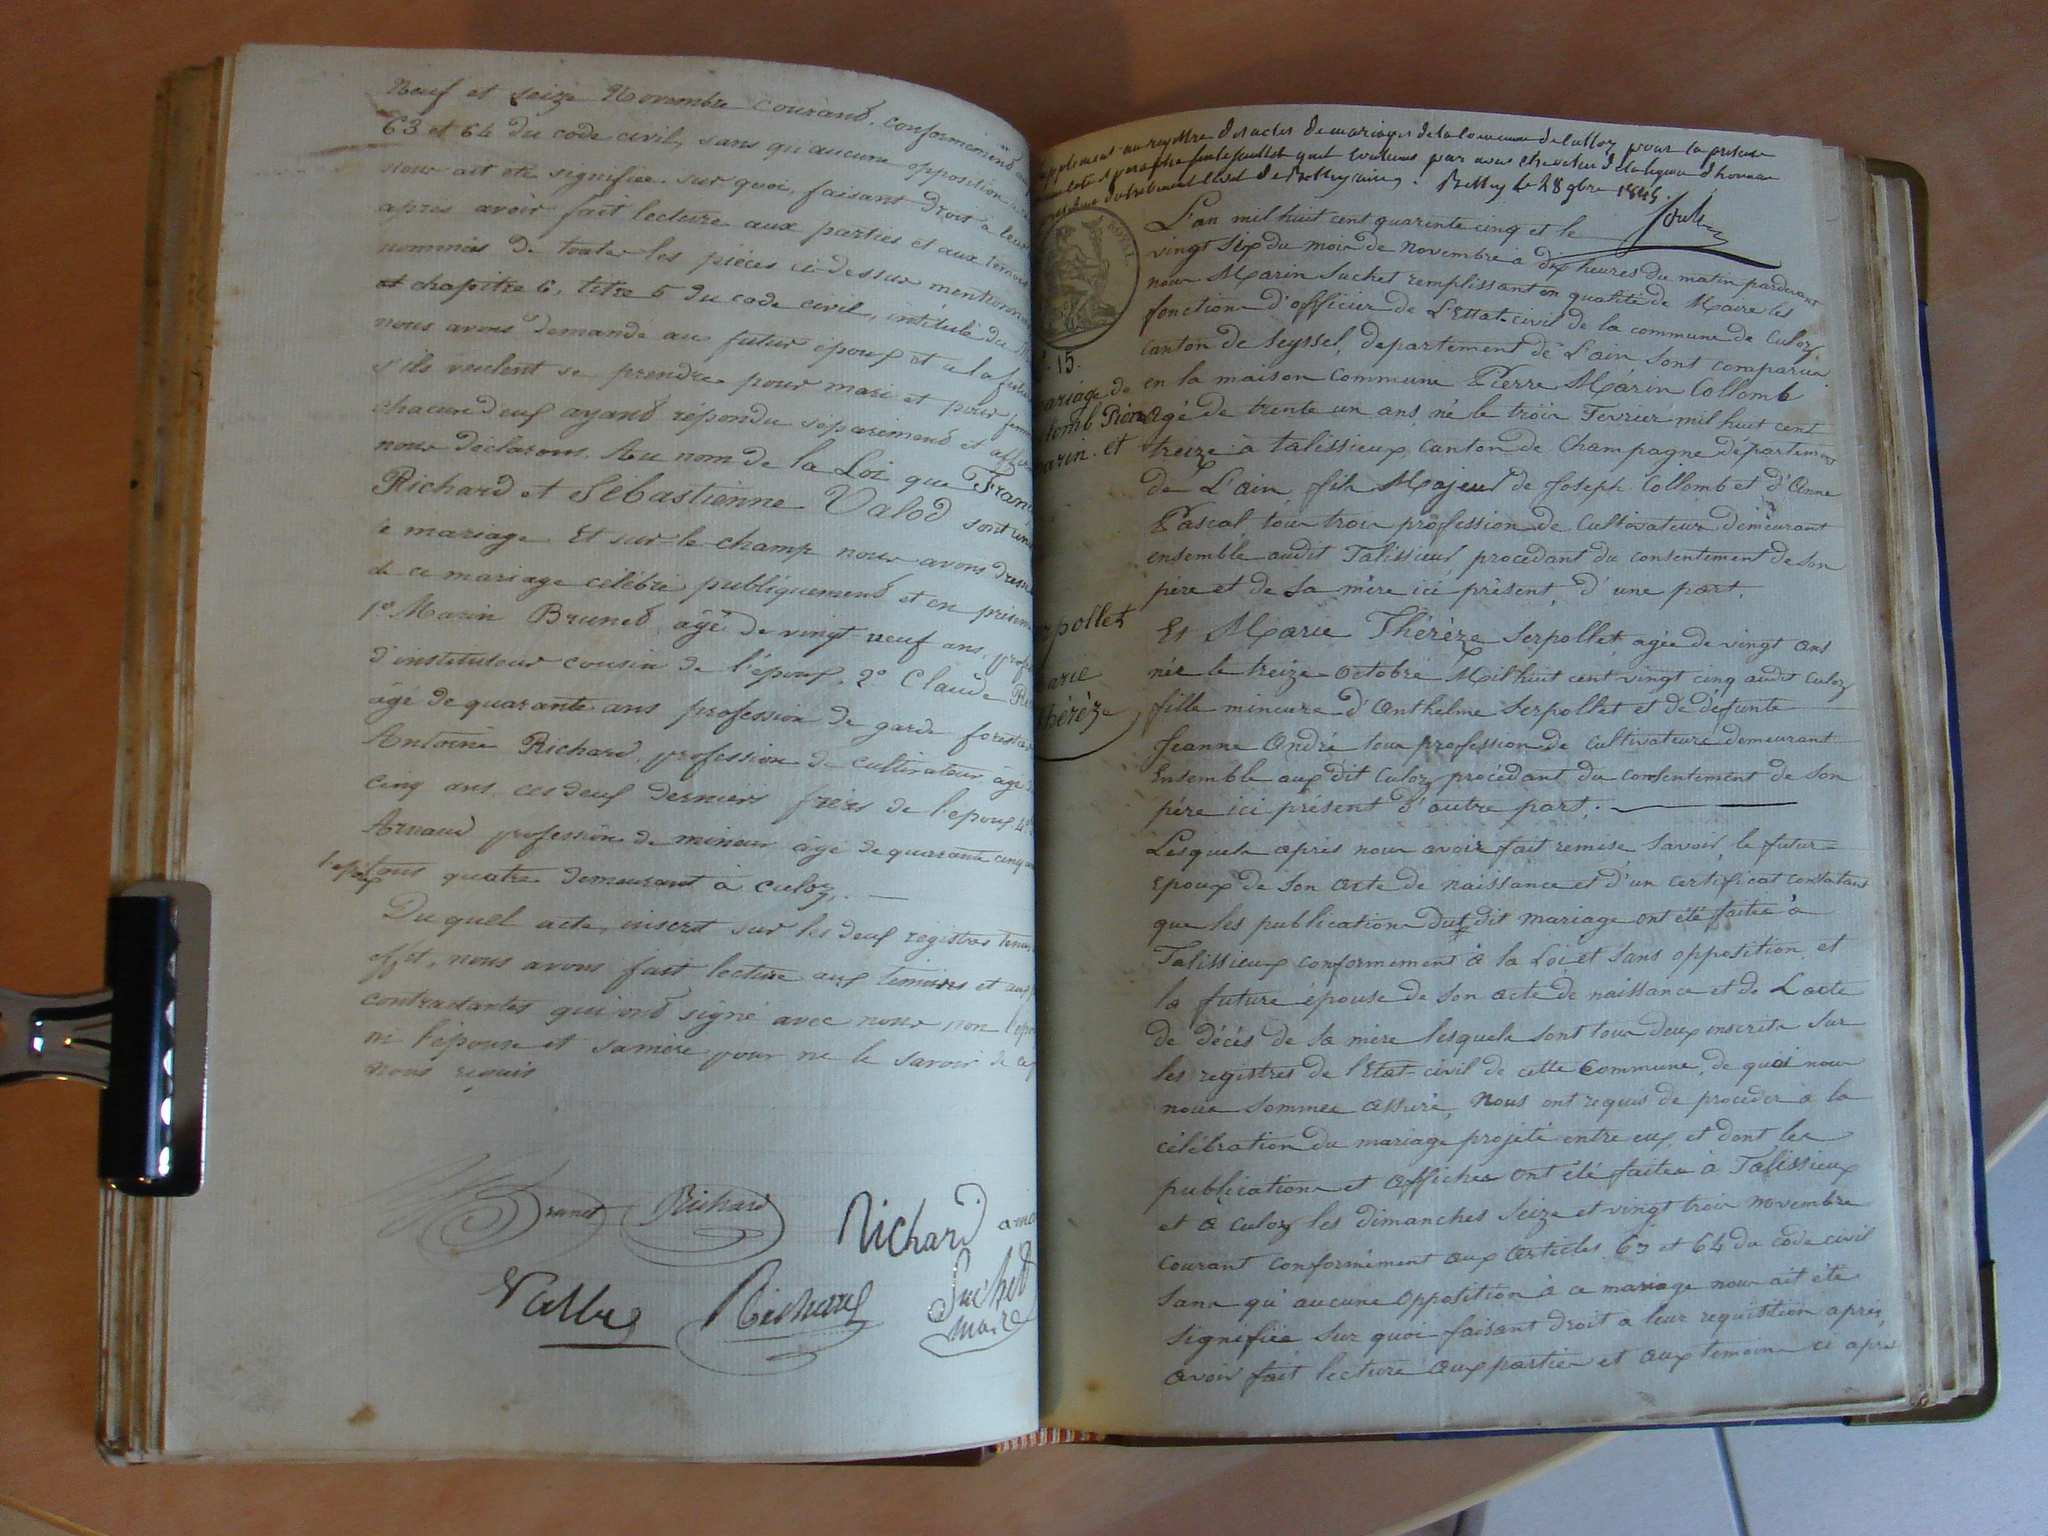 Neuf et seize Novembre courand, conformémend
63 et 64 du code civil, sans qu'aucune opposition
nour ait été signifiée. sur quoi, faisant droit à leur
après avoir fait lecture aux parties et aux témoins
nommés de toutes les pièces ci-dessus mentionnées
et chapitre 6, titre 5 du code civil, intitulé du
nous avons demandé au futur époux et a la future
s'ils veulent se prendre pour mari et pour femme
chacun d'eux ayand répondu séparémend et
nour déclarons. Au nom de la Loi que Fran
Richard et Sébastienne Valod sont unis
mariage Et sur-le-champ nour avons dressé
de ce mariage célébré publiquemend et en présence
1º Marin Bruned, âgé de vingt-neuf ans, profe
d'instituteur cousin de l'époux, 2º Claude Ri
âgé de quarante ans profession de garde forestier
Antoine Richard, profession de cultivateur, âgé
cinq ans, ces deux derniers frères de l'époux, 4º
Arnaud profession de mineur âgé de quarante cinq
tous quatre demeurant à culoz. —
Du quel acte, inscrit sur les deux registres tenus
effet, nous avons fait lecture aux témoins et aux
contractantes qui ond signé avec nour non l'épo
ni l'épouse et sa mère pour ne le savoir de ce
nous requis
Brunet Richard Richard
Richard Suchet
maire
Belley le 28 9bre 1845.
L'an mil huit cent quarente cinq et le
vingt six du mois de novembre à dix heures du matin pardevant
nour Marin Suchet remplissant en qualité de Maire les
fonctions d'officier de L'Ettat-civil de la commune de Culoz,
canton de Seyssel, département de L'ain sont comparus
15.
en la maison commune Pierre Marin Collomb
ariage de
agé de trente un ans, né le troir Fevrier mil huit cent
lomb Pierre
treize à talissieux canton de Champagne département
arin. et
de L'ain fils Majeur de Joseph Collomb et d'Anne
Pascal tour troir profession de Cultivateur demeurant
ensemble audit Talissieux procédant du consentement de son
père et de sa mère ici présent, d'une part.
rpollet
Et Marie Thérèze Serpollet, agée de vingt ans
arie
née le treize Octobre Mil huit cent vingt cinq audit Culoz
hérèze
fille mineure d'Anthelme Serpollet et de défunte
Jeanne André tour profession de cultivateurs demeurant
Ensemble aux dit Culoz procédant du consentement de son
père ici présent d'autre part. —
Lesquels après nour avoir fait remise, savoir, le futur
Epoux de son acte de naissance et d'un certificat constatant
que les publications du dit mariage ont été faites à
Talissieux conformément à la Loi et sans opposition, et
la future épouse de son acte de naissance et de L'acte
de décès de sa mère lesquels sont tour deux inscrits sur
les registres de l'Etat-civil de cette Commune, de quoi nour
nour sommes assuré, Nous ont requis de procéder à la
célébration du mariage projeté entre eux et dont les
publications et affiches ont été faites à Talissieux
et à Culoz les dimanches Seize et vingt troir novembre
courant conformément aux articles 63 et 64 du code civil
sans qu'aucune opposition à ce mariage nour ait été
signifiée sur quoi faisant droit a leur requisition après
avoir fait lecture aux parties et aux temoins ci après